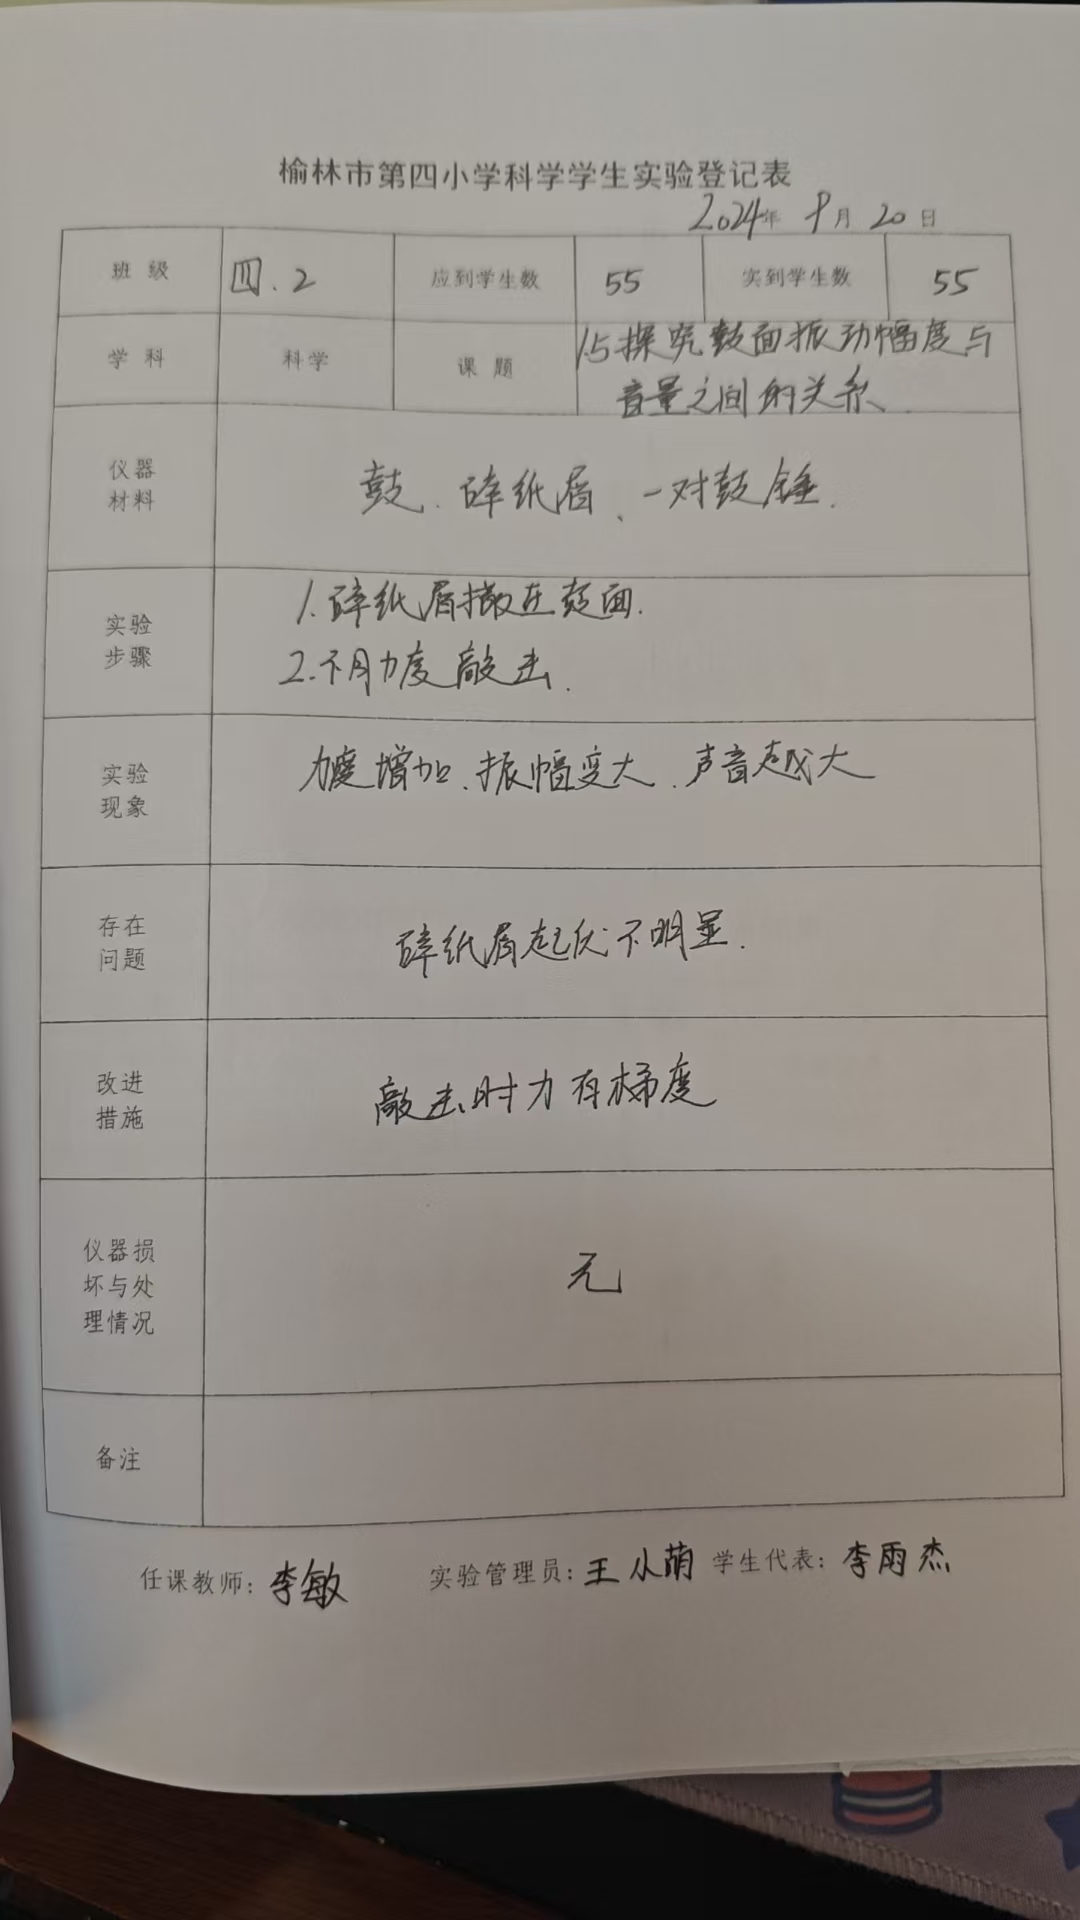 榆林市第四小学科学学生实验登记表
2024年 9月 20日
班级 四.2 应到学生数 55 实到学生数 55
学科 科学 课题 1.5探究鼓面振动幅度与
音量之间的关系.
仪器
材料
鼓、碎纸屑、一对鼓锤.
实验
步骤
1.碎纸屑撒在鼓面.
2.不同力度敲击.
实验
现象
力度增加、振幅变大、声音越大
存在
问题
碎纸屑起伏不明显.
改进
措施
敲击时力有梯度
仪器损
坏与处
理情况
无
备注
任课教师:李敏 实验管理员:王小萌 学生代表:李雨杰